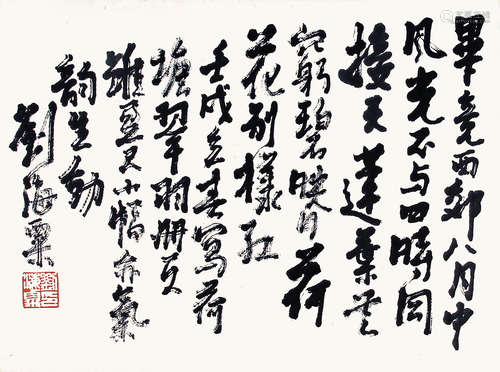 畢竟西郊八月中
風光不与四時同
接天蓮葉無
窮碧映日荷
花别樣红
壬戌立春寫荷
塘翠羽册頁
雖盈尺小幅亦氣
韵生動
劉海粟